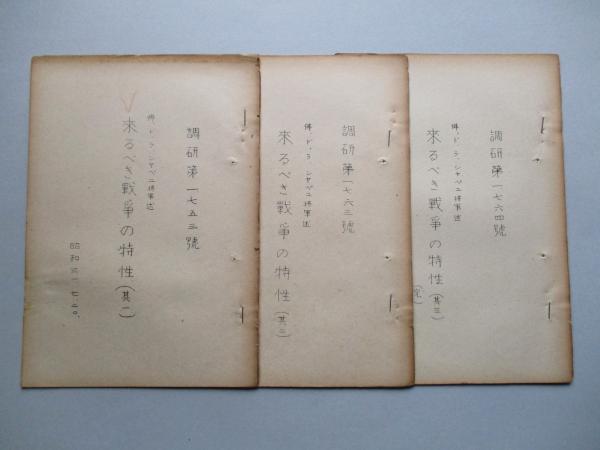 調研第一七五三號
佛、ド、ラ、シャペニ将軍述
來るべき戰爭の特性(其一)
昭和三一、七、二〇、
調研第一七六三號
佛、ド、ラ、シャペニ将軍述
來るべき戰爭の特性(其二)
調研第一七六四號
佛、ド、ラ、シャペニ将軍述
來るべき戰爭の特性(其三)
(完)